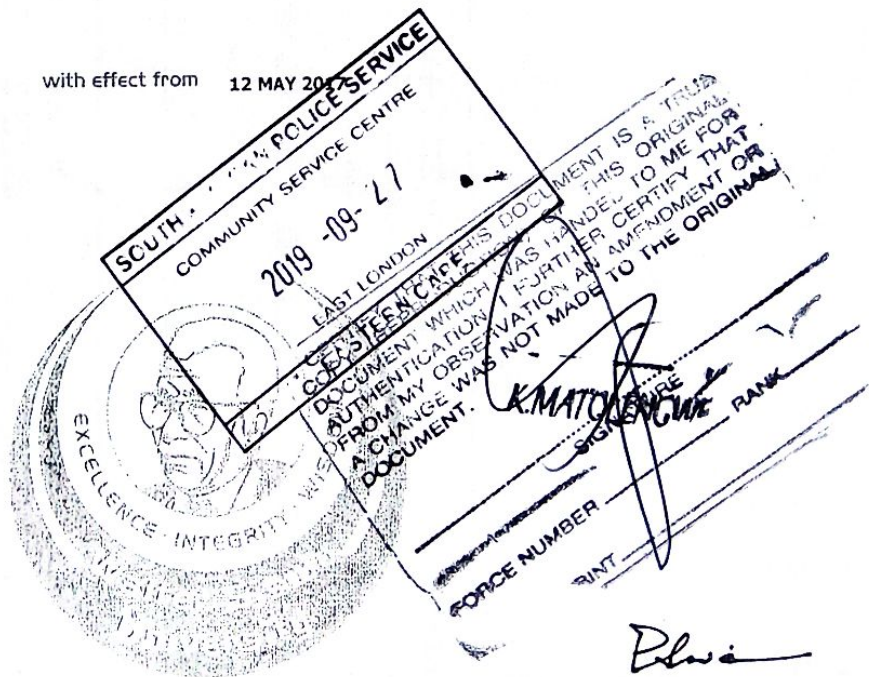 with effect from 12 MAY 2017
SOUTH AFRICAN POLICE SERVICE
COMMUNITY SERVICE CENTRE
2019 -09- 27
EAST LONDON
EASTEEN CAPE
THIS DOCUMENT IS A TRUE
THIS ORIGINAL
DOCUMENT WHICH WAS HANDED TO ME FOR
AUTHENTICATION I FURTHER CERTIFY THAT
FROM MY OBSERVATION AN AMENDMENT OR
A CHANGE WAS NOT MADE TO THE ORIGINAL
DOCUMENT.
SIGNATURE
RANK
FORCE NUMBER
PRINT
EXCELLENCE · INTEGRITY ·